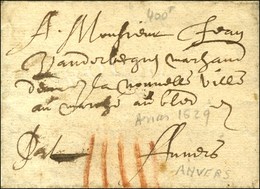 A Monsieur Jean
Vanderberguen marchand
dem[...] la nouvelle ville
au marché au bled
Anvers 1629
Anvers
ANVERS